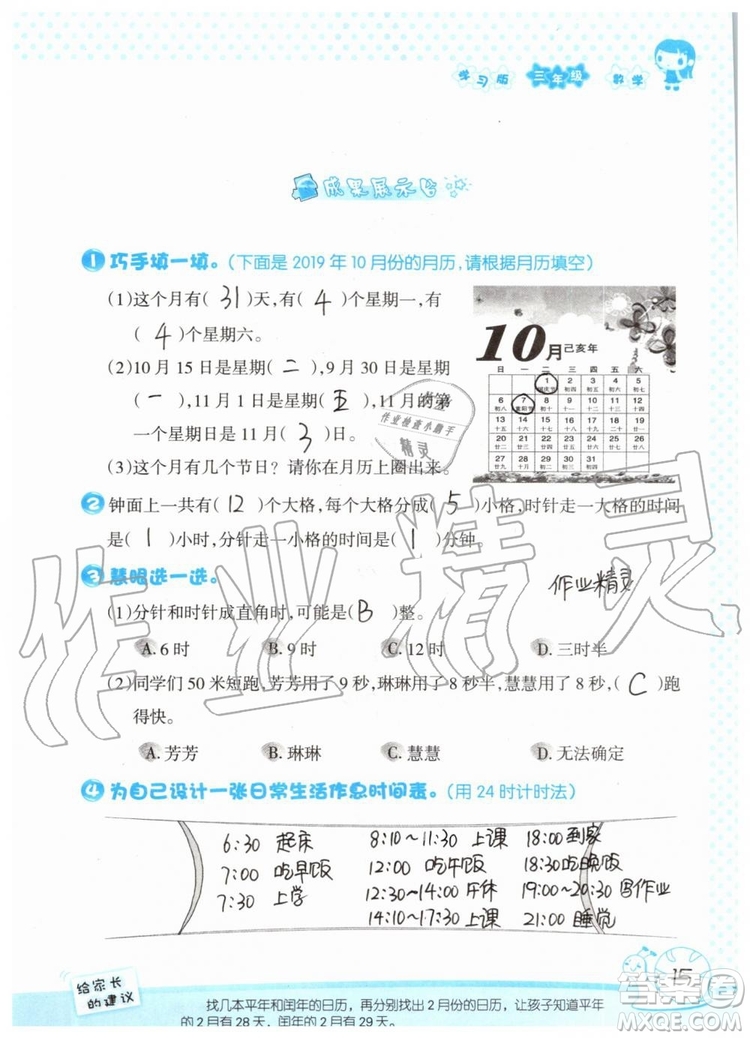 学习版 三年级 数学
成果展示台
1 巧手填一填。(下面是 2019 年 10 月份的月历,请根据月历填空)
(1)这个月有( 31 )天,有( 4 )个星期一,有
( 4 )个星期六。
(2)10 月 15 日是星期( 二 ),9 月 30 日是星期
( 一 ),11 月 1 日是星期( 五 ),11 月的第
一个星期日是 11 月( 3 )日。
(3)这个月有几个节日?请你在月历上圈出来。
10月己亥年
日 一 二 三 四 五 六
1 2 3 4 5
国庆节 初四 初五 初六 初七
6 7 8 9 10 11 12
初八 重阳节 初十 十一 十二 十三 十四
13 14 15 16 17 18 19
十五 十六 十七 十八 十九 二十 廿一
20 21 22 23 24 25 26
廿二 廿三 廿四 廿五 廿六 廿七 廿八
27 28 29 30 31
廿九 初一 初二 初三 初四
作业检查小助手
精灵
2 钟面上一共有( 12 )个大格,每个大格分成( 5 )小格,时针走一大格的时间
是( 1 )小时,分针走一小格的时间是( 1 )分钟。
3 慧眼选一选。
作业精灵
(1)分针和时针成直角时,可能是( B )整。
A. 6 时 B. 9 时 C. 12 时 D. 三时半
(2)同学们 50 米短跑,芳芳用了 9 秒,琳琳用了 8 秒半,慧慧用了 8 秒,( C )跑
得快。
A. 芳芳 B. 琳琳 C. 慧慧 D. 无法确定
4 为自己设计一张日常生活作息时间表。(用 24 时计时法)
6:30 起床 8:10~11:30 上课 18:00到家
7:00 吃早饭 12:00 吃午饭 18:30吃晚饭
7:30 上学 12:30~14:00 午休 19:00~20:30 写作业
14:10~17:30 上课 21:00 睡觉
作业精灵
15
答案圈
MXQE.COM
给家长
的建议
找几本平年和闰年的日历,再分别找出 2 月份的日历,让孩子知道平年
的 2 月有 28 天,闰年的 2 月有 29 天。